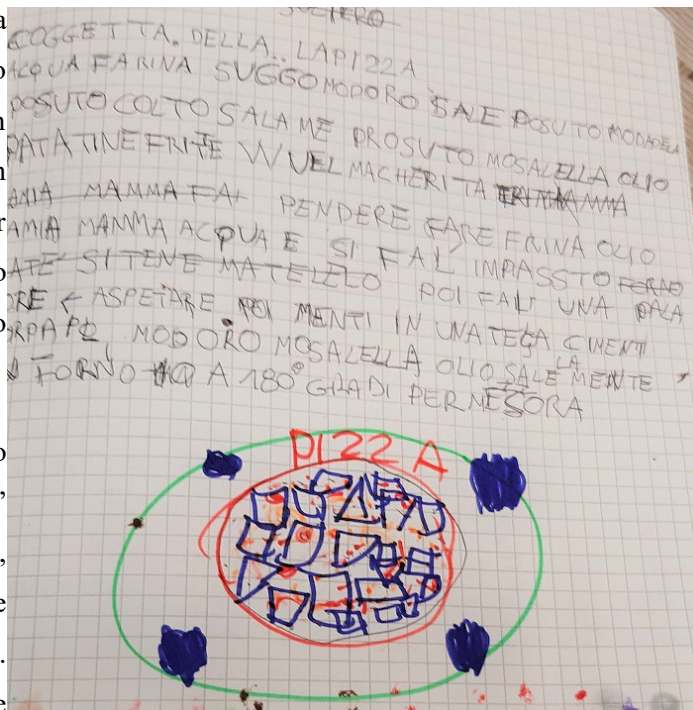 COGGETTA. DELLA.. LAPIZZA
ACQUA FARINA SUGGOMODORO SALE POSUTO MODADELA
POSUTO COLTO SALAME PROSUTO MOSALELLA OLIO
PATATINE FRITE VVUEL MACHERITA
AMIA MAMMA FA PENDERE FARE FRINA OLIO
AMIA MAMMA ACQUA E SI FAL IMPASSTO FORNO
ATE SI TENE MATELELO POI FALI UNA PALA
ORE E ASPETARE POI MENTI IN UNA TEGA CIMENTI
MODORO MOSALELLA OLIO SALE LA MENTE
FORNO A 180° GRADI PER MESORA
PIZZA